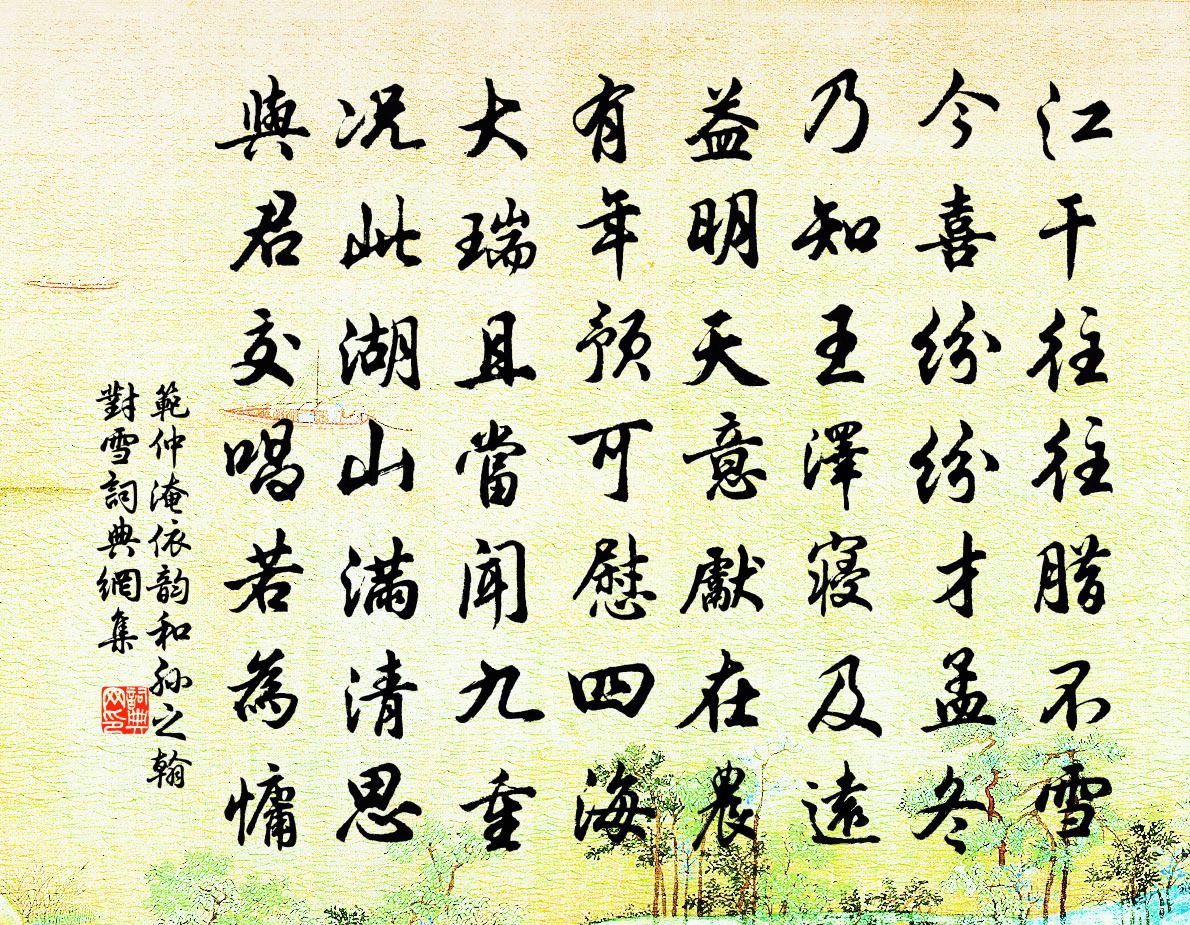 江干往往腊不雪
今喜纷纷才孟冬
乃知王澤寝及遠
益明天意獻在農
有年预可慰四海
大瑞且當闻九重
况此湖山满清思
與君交唱若為慵
範仲淹依韵和孙之翰
對雪詞典網集
詞典网印